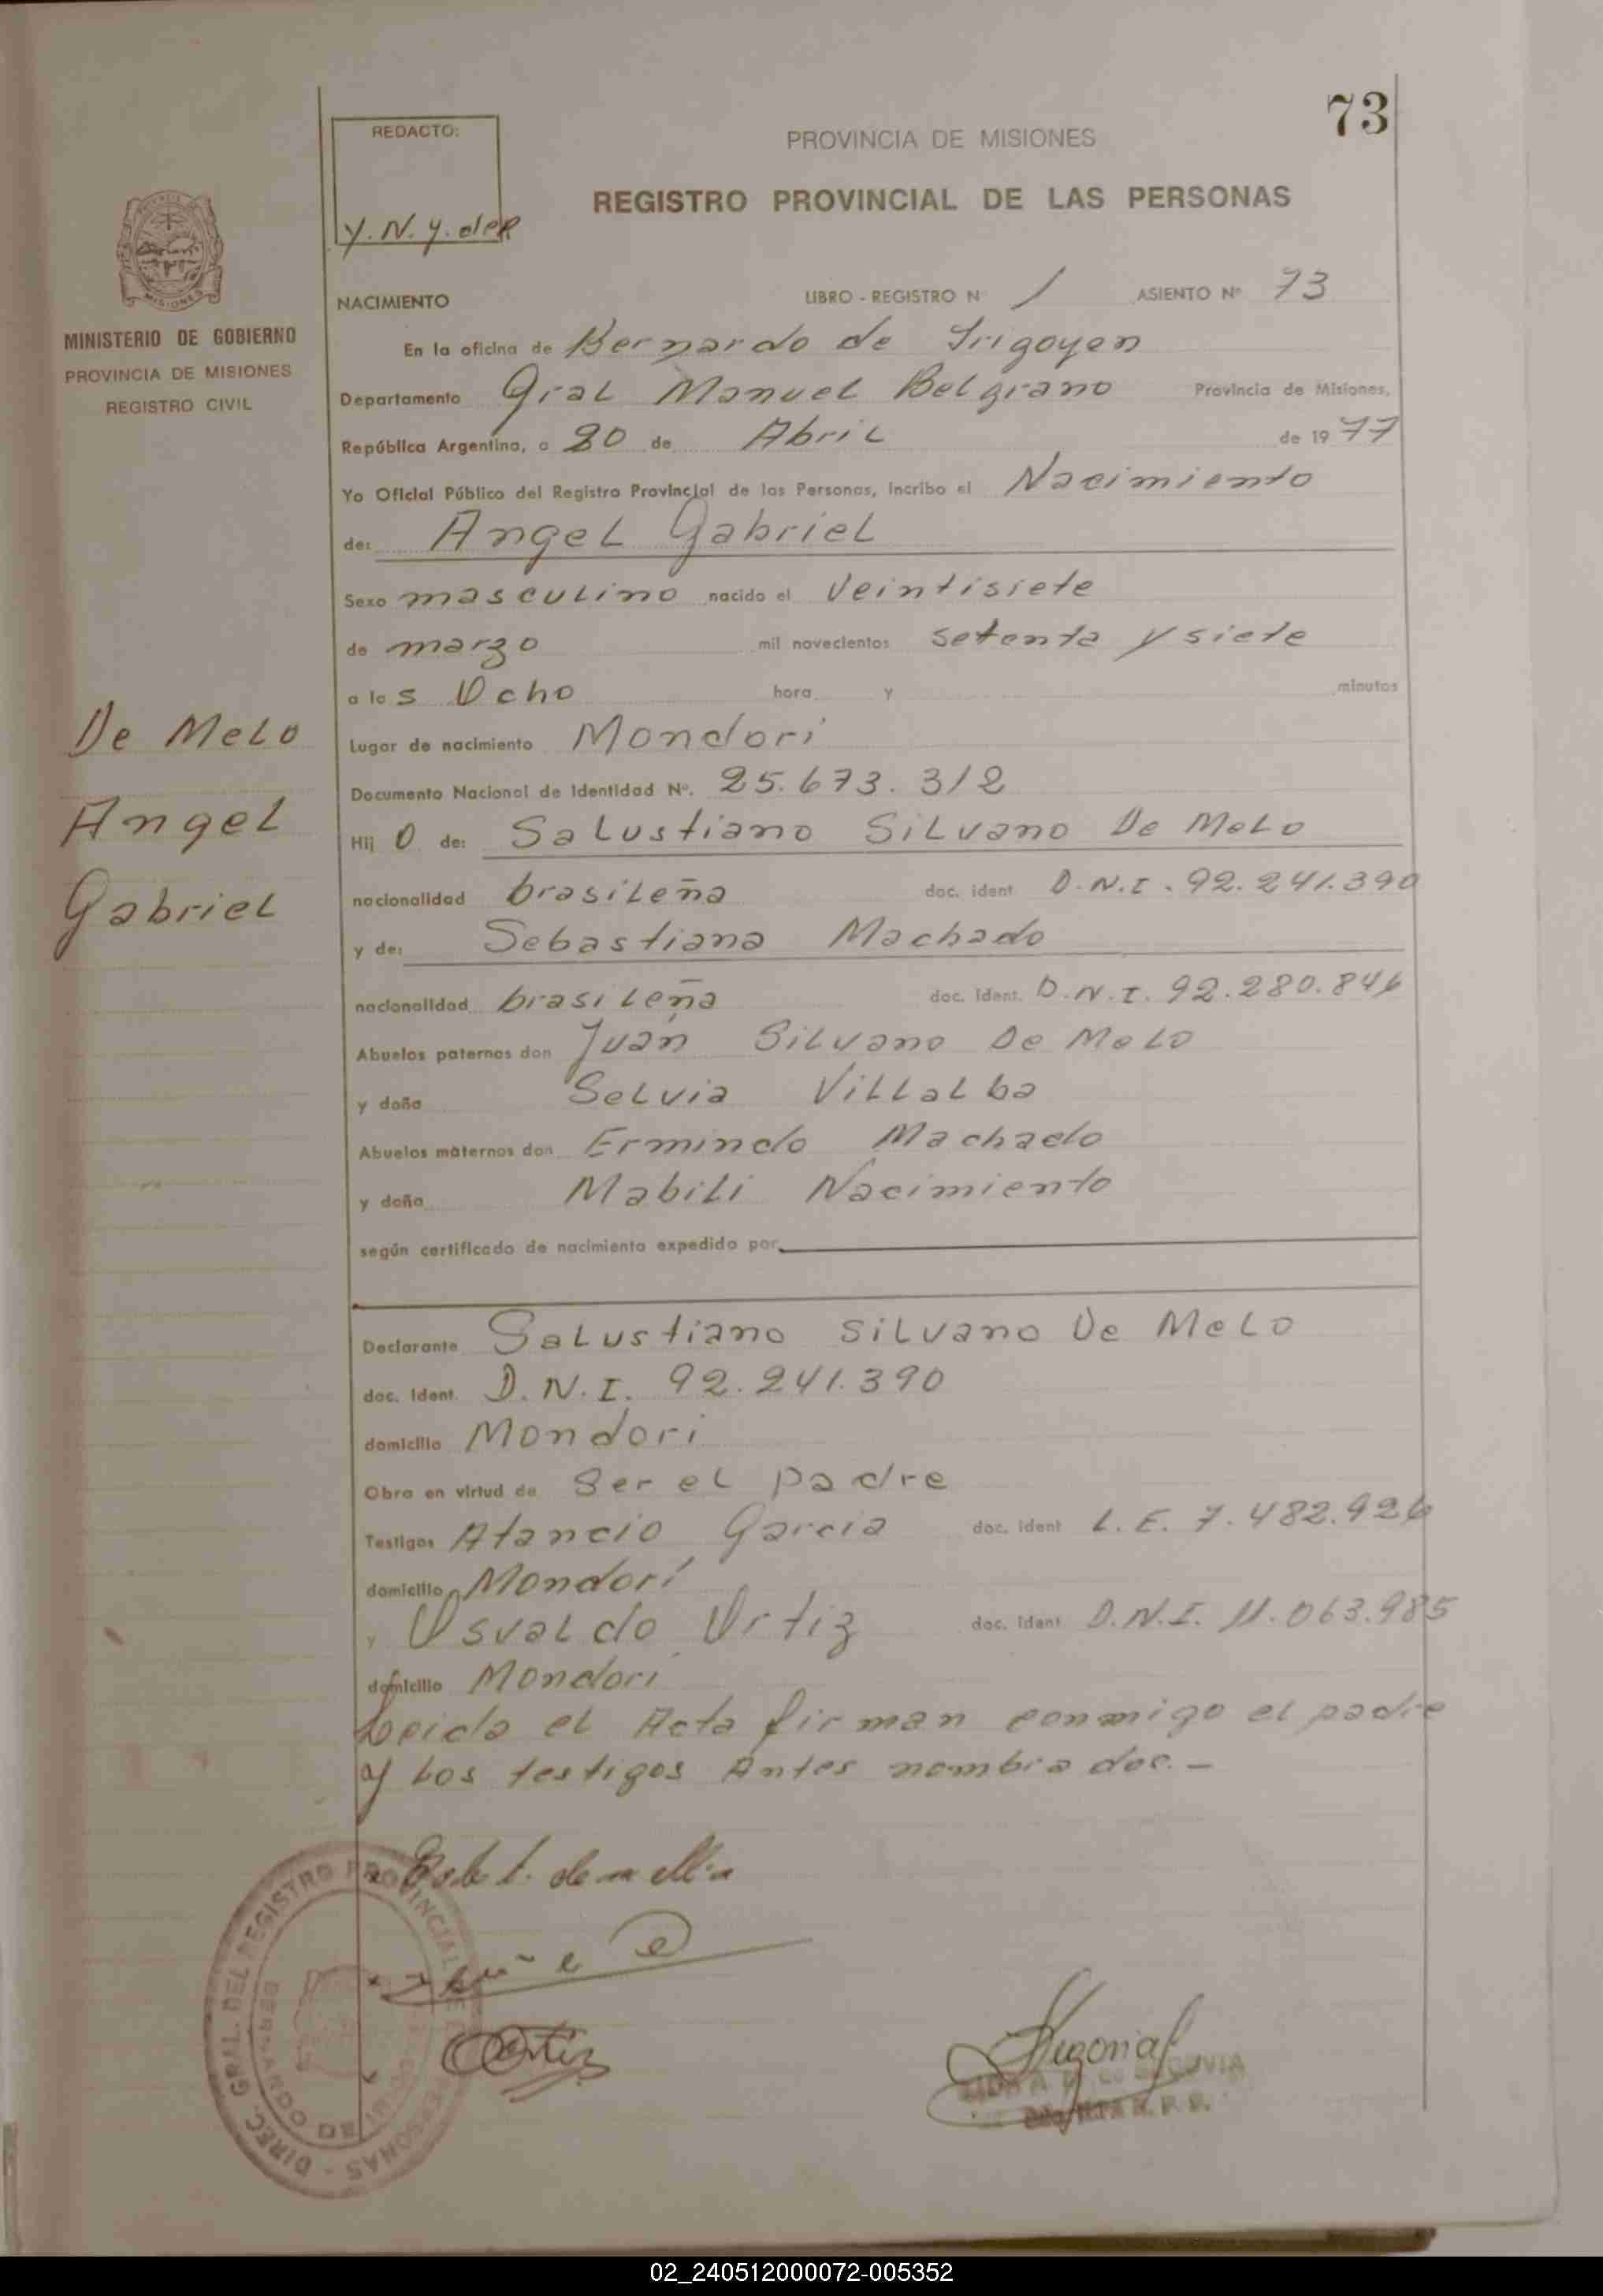 73
REDACTO:
Y. N. y. deR
PROVINCIA DE MISIONES
REGISTRO PROVINCIAL DE LAS PERSONAS
MISIONES
MINISTERIO DE GOBIERNO
PROVINCIA DE MISIONES
REGISTRO CIVIL
NACIMIENTO LIBRO - REGISTRO Nº 1 ASIENTO Nº 73
En la oficina de Bernardo de Irigoyen
Departamento Gral Manuel Belgrano Provincia de Misiones,
República Argentina, a 20 de Abril de 1977
Yo Oficial Público del Registro Provincial de las Personas, incribo el Nacimiento
de: Angel Gabriel
Sexo masculino nacido el Veintisiete
de marzo mil novecientos setenta y siete
a las Ocho hora y minutos
De Melo
Angel
Gabriel
Lugar de nacimiento Mondori
Documento Nacional de Identidad Nº. 25.673.312
Hijo de: Salustiano Silvano De Melo
nacionalidad brasileña doc. ident. D.N.I. 92.241.390
y de: Sebastiana Machado
nacionalidad brasileña doc. ident. D.N.I. 92.280.846
Abuelos paternos don Juan Silvano De Melo
y doña Selvia Villalba
Abuelos maternos don Ermindo Machado
y doña Mabili Nacimiento
según certificado de nacimiento expedido por
Declarante Salustiano Silvano De Melo
doc. ident. D.N.I. 92.241.390
domicilio Mondori
Obra en virtud de Ser el padre
Testigos Atancio Garcia doc. ident L.E. 7.482.926
domicilio Mondori
y Osvaldo Ortiz doc. ident D.N.I. 11.063.985
domicilio Mondori
Leida el Acta firman conmigo el padre
y Los testigos Antes nombrados.-
DIREC. GRAL. DEL REGISTRO PROVINCIAL DE PERSONAS
Ortiz
02_240512000072-005352